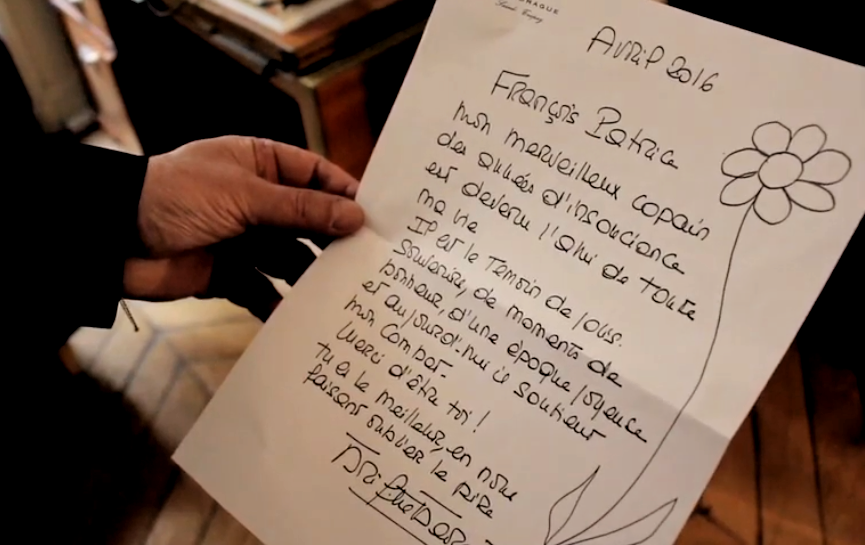 Avril 2016
François Patrice
mon merveilleux copain
des années d'insouciance
est devenu l'ami de toute
ma vie
Il est le Témoin de jolis
souvenirs, de moments de
bonheur, d'une époque joyeuse
et aujourd'hui il soutient
mon Combat.
Merci d'être toi !
tu es le meilleur, en nous
faisant oublier le pire